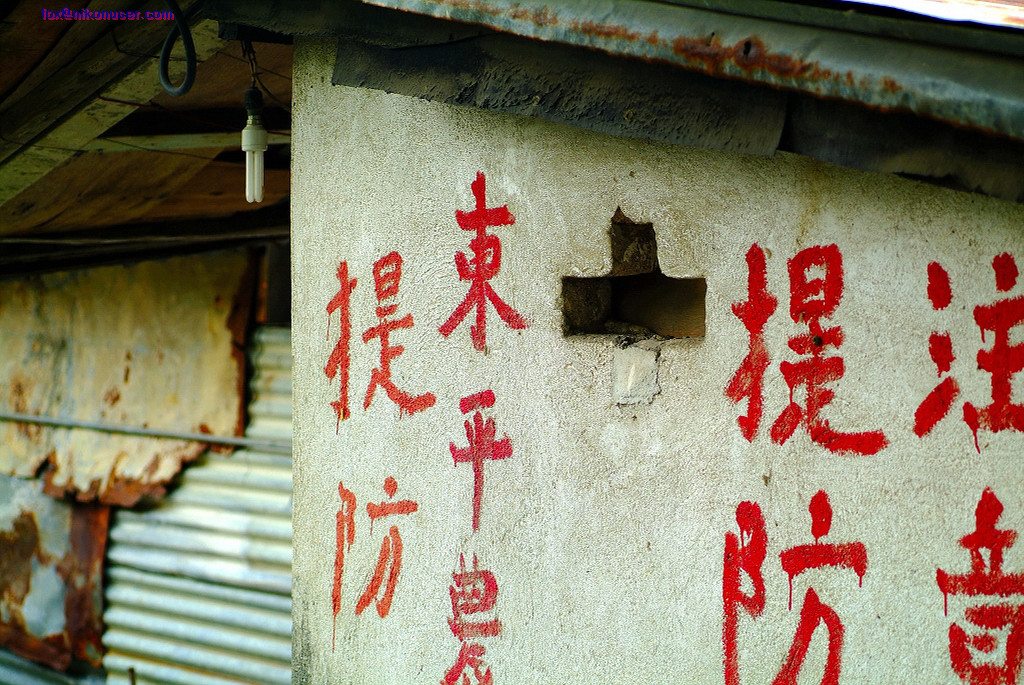 lox@nikonuser.com
注意
提防
東平農
提防